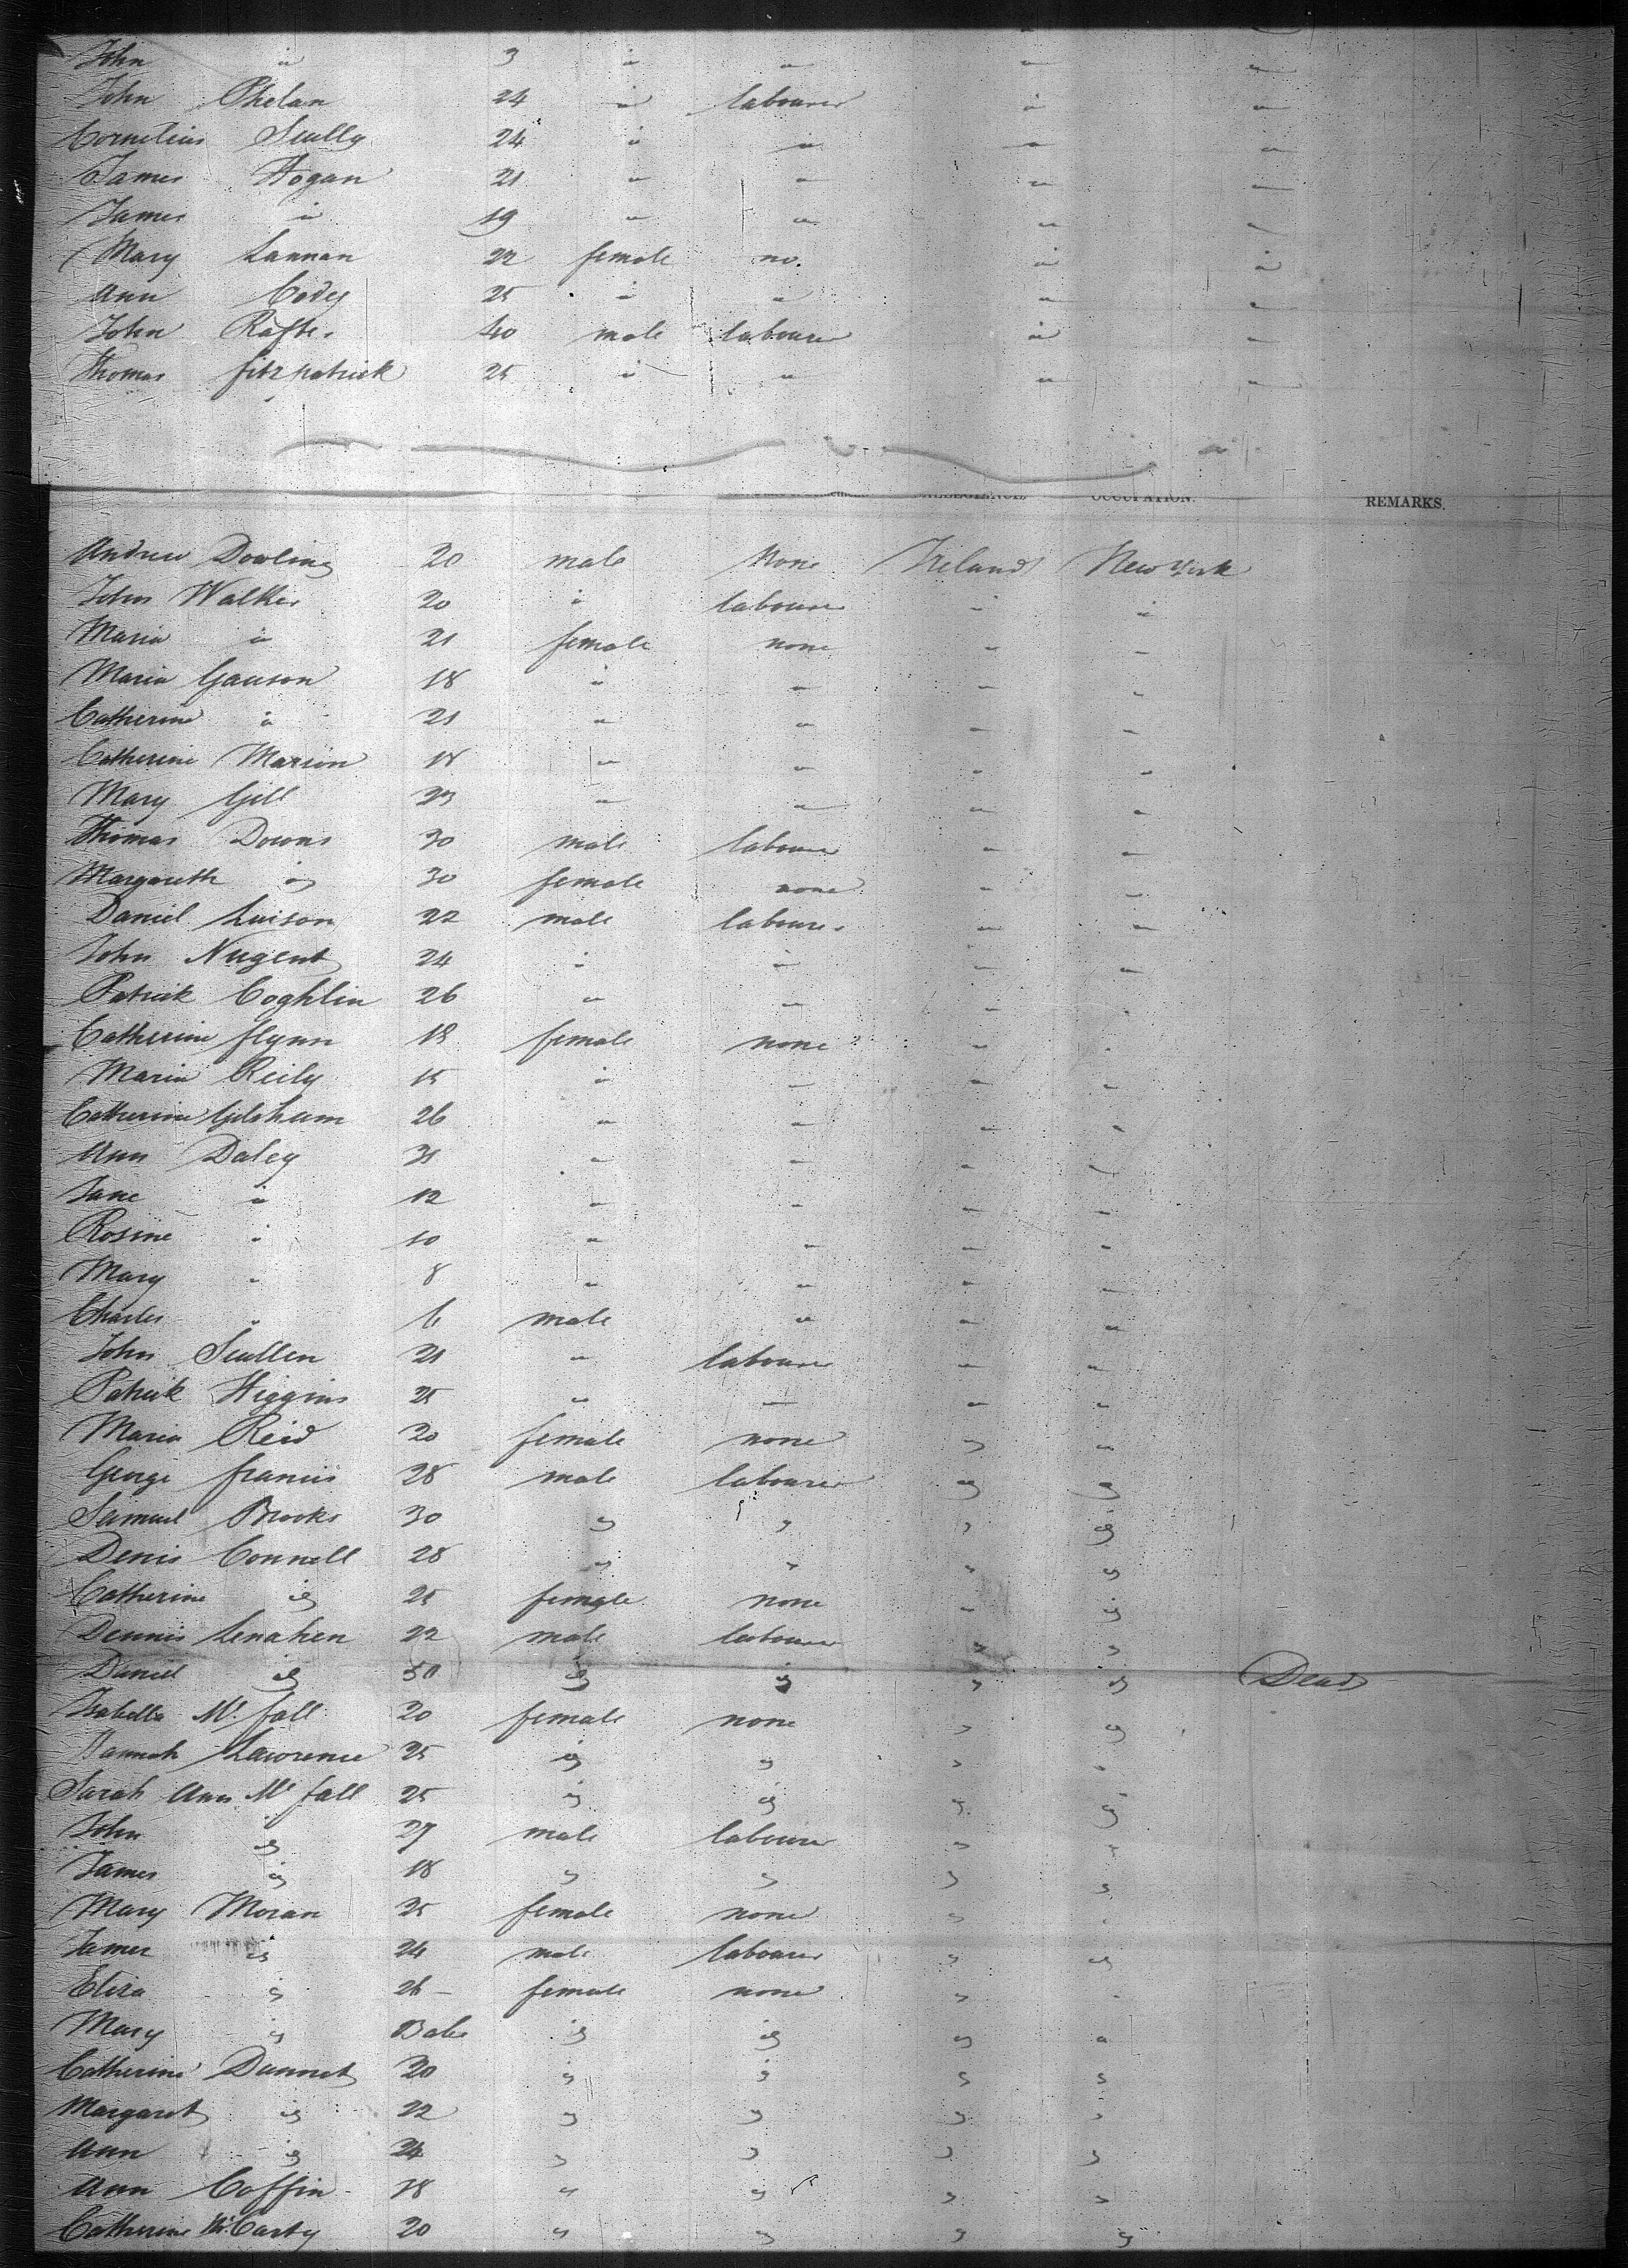 John " 3 " " " "
John Phelan 24 " labourer " "
Cornelius Scully 24 " " " "
James Hogan 21 " " " "
James " 19 " " " "
Mary Lannan 22 female no. " "
Ann Codey 25 " " " "
John Rafter 40 male labourer " "
Thomas fitzpatrick 25 " " " "
OCCUPATION. REMARKS.
Andrew Dowling 20 male None Ireland New York
John Walker 20 " labourer " "
Maria " 21 female none " "
Maria Gauson 18 " " " "
Catherine " 21 " " " "
Catherine Marion 18 " " " "
Mary Gill 23 " " " "
Thomas Downs 30 male labourer " "
Margareth " 30 female none " "
Daniel Luison 22 male labourer " "
John Nugent 24 " " " "
Patrick Coghlin 26 " " " "
Catherine flynn 18 female none " "
Maria Reily 15 " " " "
Catherine 26 " " " "
Ann Daley 31 " " " "
Jane " 12 " " " "
Rosine " 10 " " " "
Mary " 8 " " " "
Charles " 6 male " " "
John Scullen 21 " labourer " "
Patrick Higgins 25 " " " "
Maria Reid 20 female none " "
George francis 28 male labourer " "
Samuel Brooks 30 " " " "
Denis Connell 28 " " " "
Catherine " 25 female none " "
Dennis Lenahen 22 male labourer " "
Daniel " 50 " " " " Dead
Isabella Mc fall 20 female none " "
Hannah Lawrence 25 " " " "
Sarah Ann Mc fall 25 " " " "
John " 27 male labourer " "
James " 18 " " " "
Mary Moran 25 female none " "
James " 24 male labourer " "
Eliza " 26 female none " "
Mary " Babe " " " "
Catherine Dunnet 20 " " " "
Margaret " 22 " " " "
Ann " 24 " " " "
Ann Coffin 18 " " " "
Catherine Mc Carty 20 " " " "